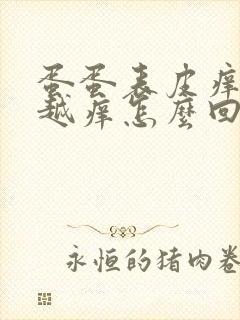 蛋蛋表皮痒
越痒怎麽回
永恒的猪肉卷